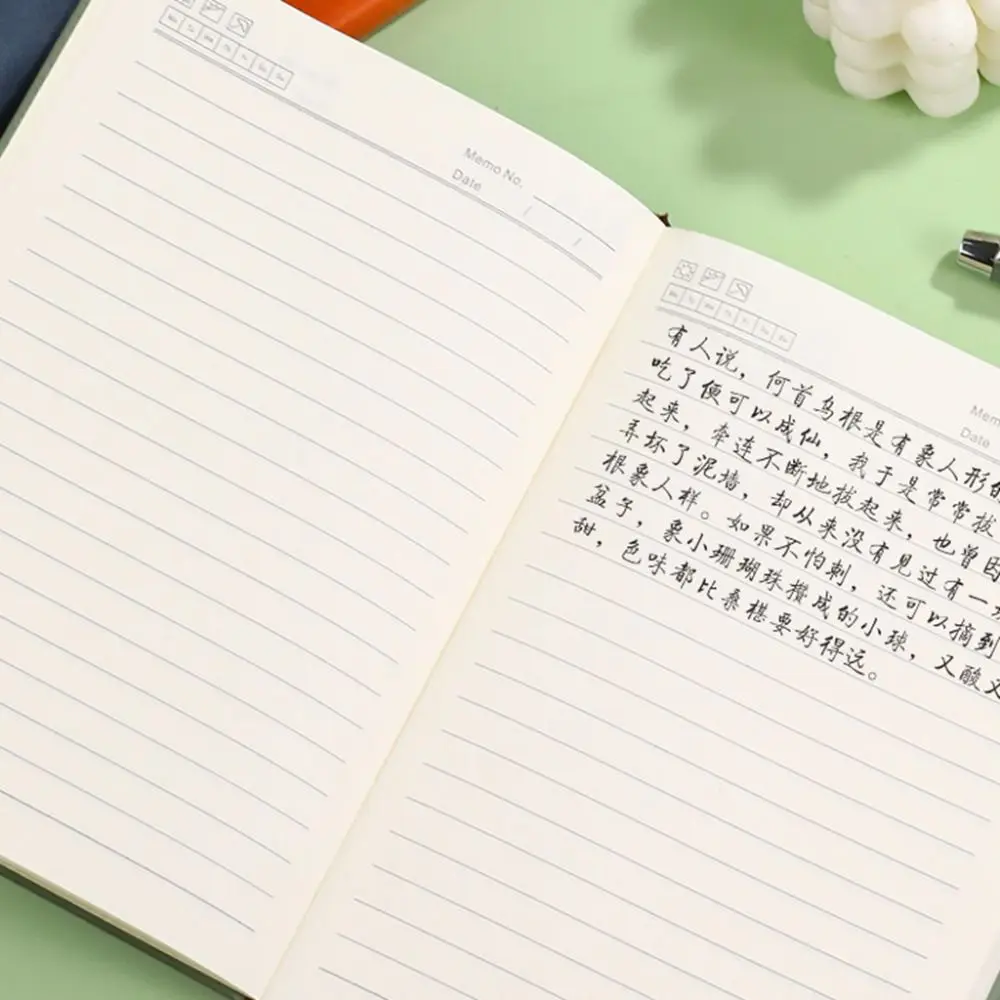 Memo No.
Date / /
有人说，何首乌根是有象人形的
吃了便可以成仙，我于是常常拔
起来，牵连不断地拔起来，也曾因
弄坏了泥墙，却从来没有见过有一
根象人样。如果不怕刺，还可以摘到
盆子，象小珊瑚珠攒成的小球，又酸又
甜，色味都比桑椹要好得远。
Date